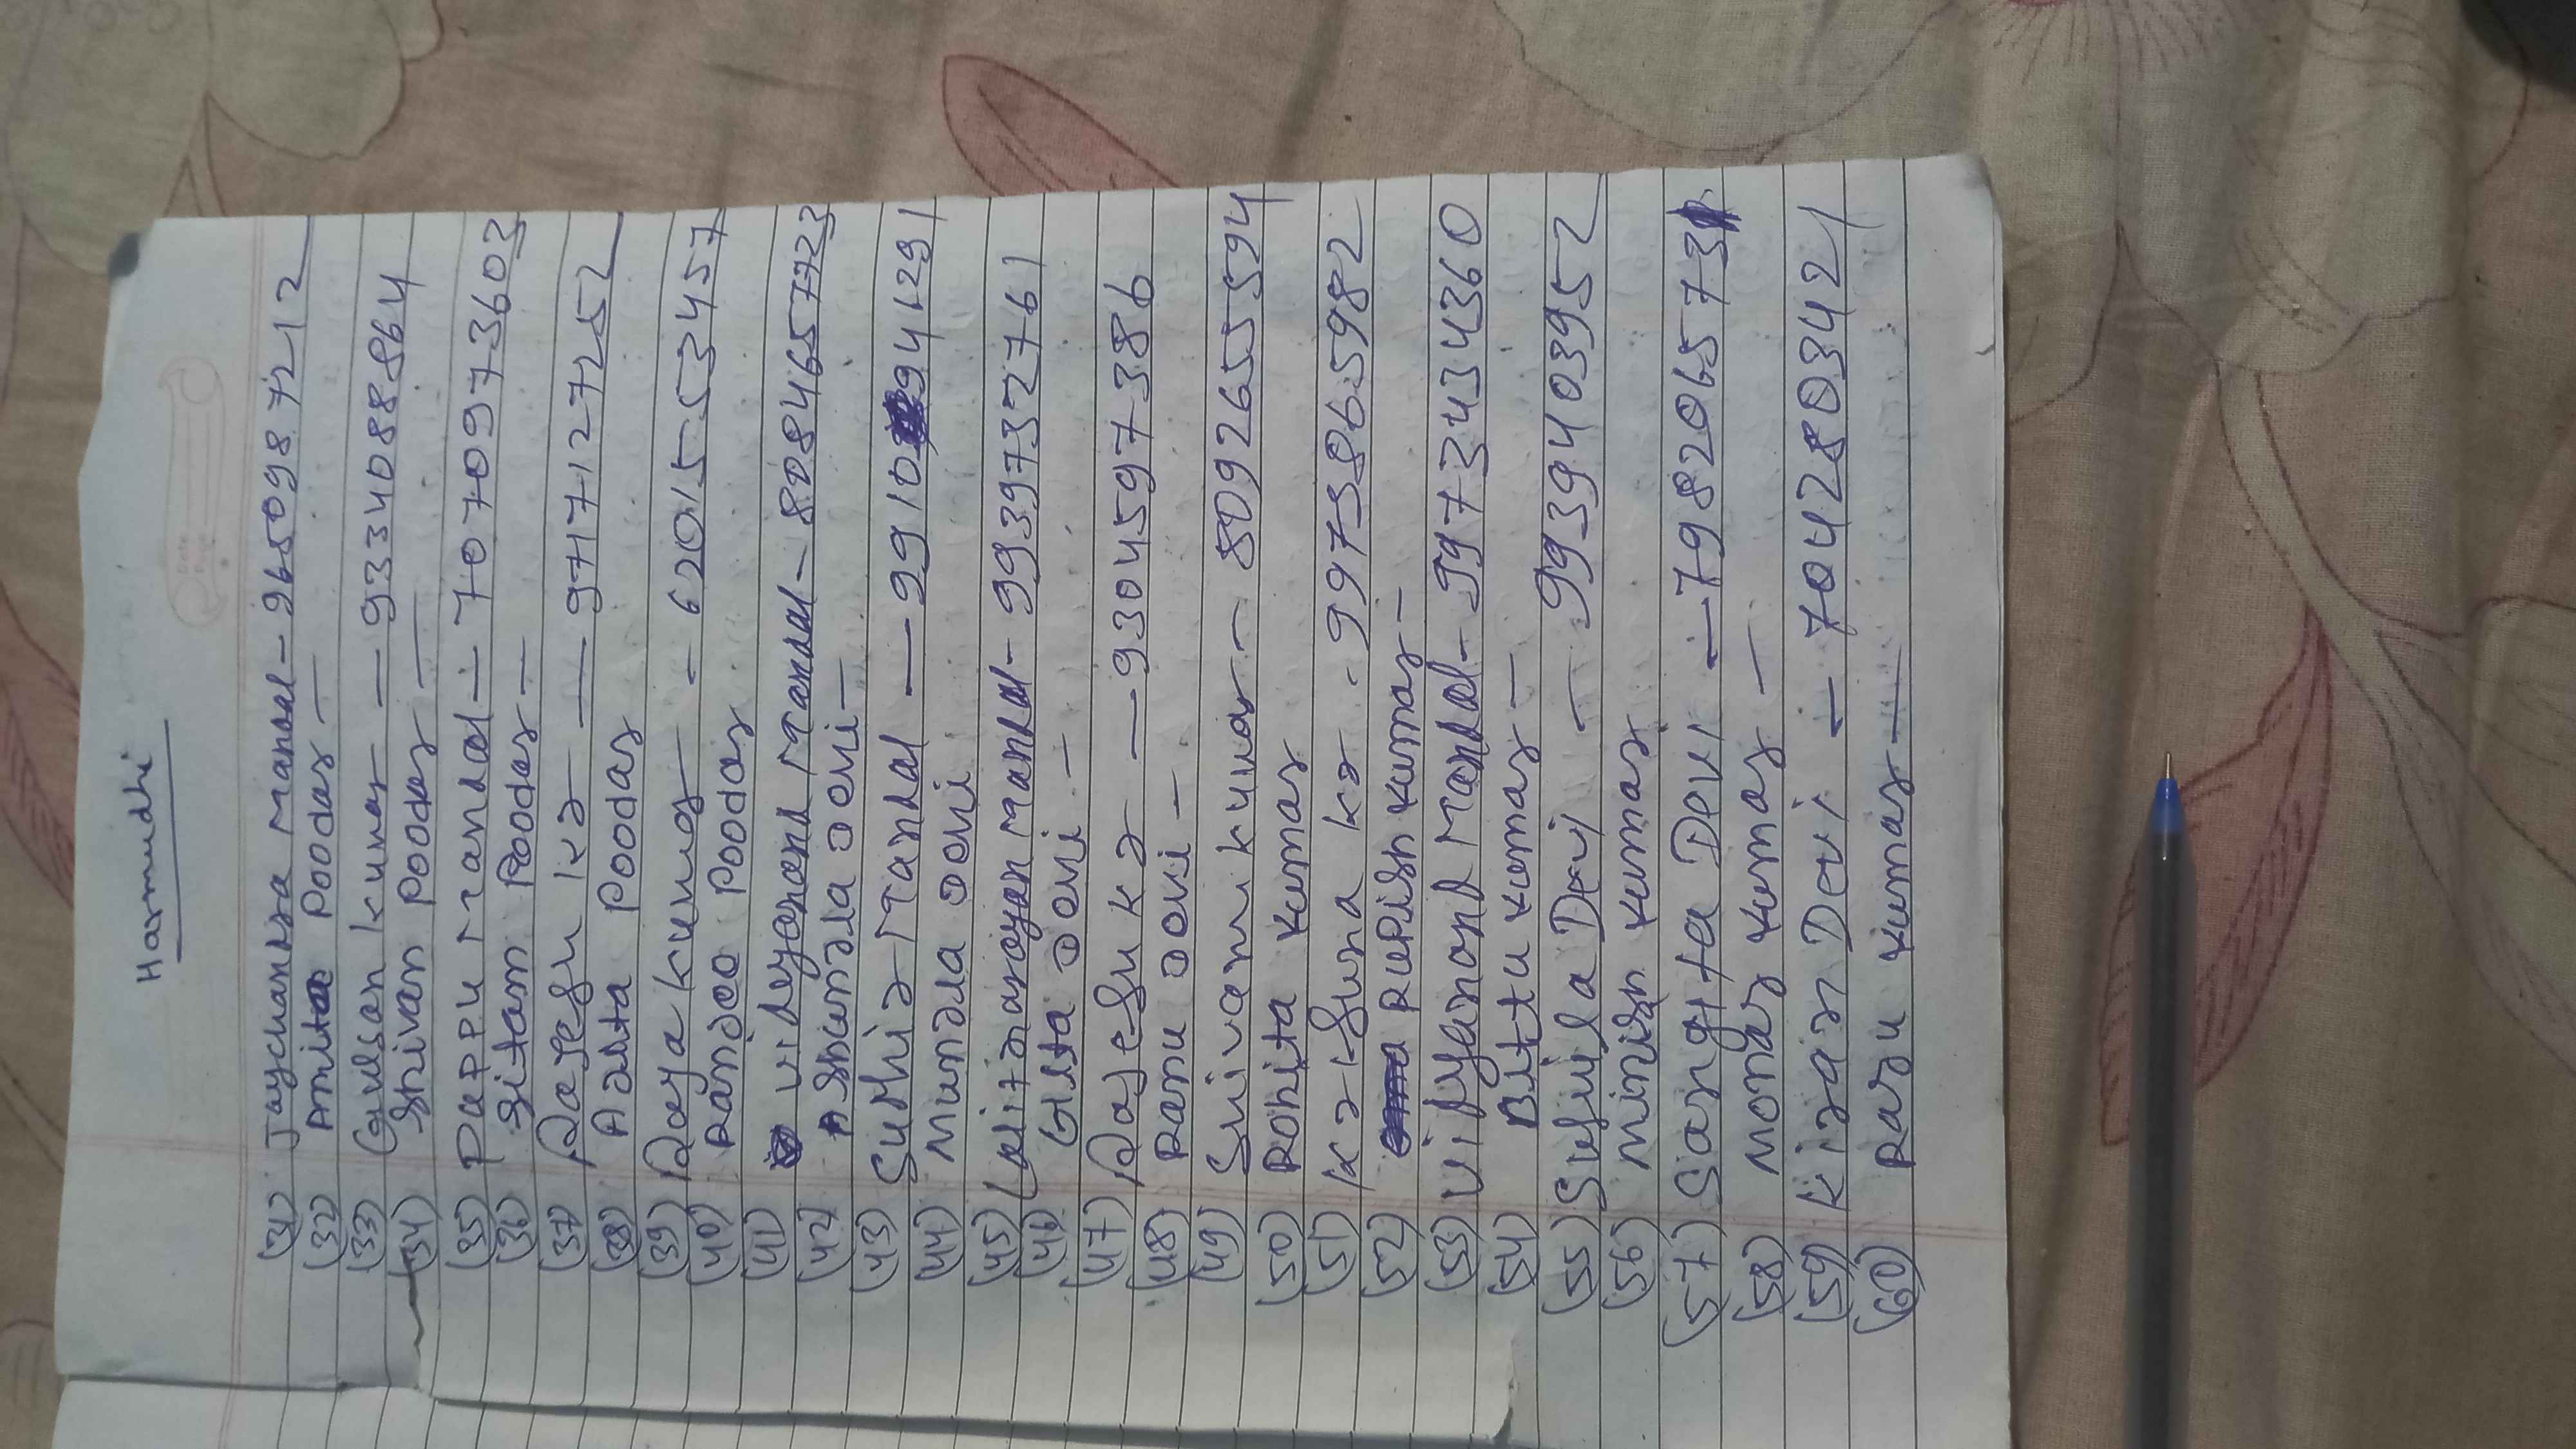 Harmudhi
(31) Jaychandra Mandal - 9650987212
(32) Amita Poddar —
(33) Gulsan kumar — 9334088864
(34) Shivan Poddar —
(35) Pappu Mandal — 7070973603
(36) Sitam Poddar —
(37) Rajesh kr — 9717127252
(38) Arita Poddar
(39) Daya kumar — 6201553457
(40) Ranjeo Poddar
(41) Vidyanand Mandal - 8084657723
(42) Devi —
(43) Sudhir Mandal — 9910941291
(44) Mundra Devi
(45) Lalit narayan Mandal - 9939732761
(46) Gita Devi —
(47) Rajesh kr — 9304597386
(48) Ranu Devi —
(49) Shivam kumar - 8092655594
(50) Rohita kumar
(51) Krishna kr - 9973865982
(52) Rupish kumar -
(53) Vidyanand Mandal - 9973434360
(54) Bittu kumar —
(55) Sushila Devi — 9939403952
(56) Minish kumar
(57) Sangita Devi — 798206573
(58) Monar kumar —
(59) Kiran Devi — 7042803421
(60) Raju kumar —